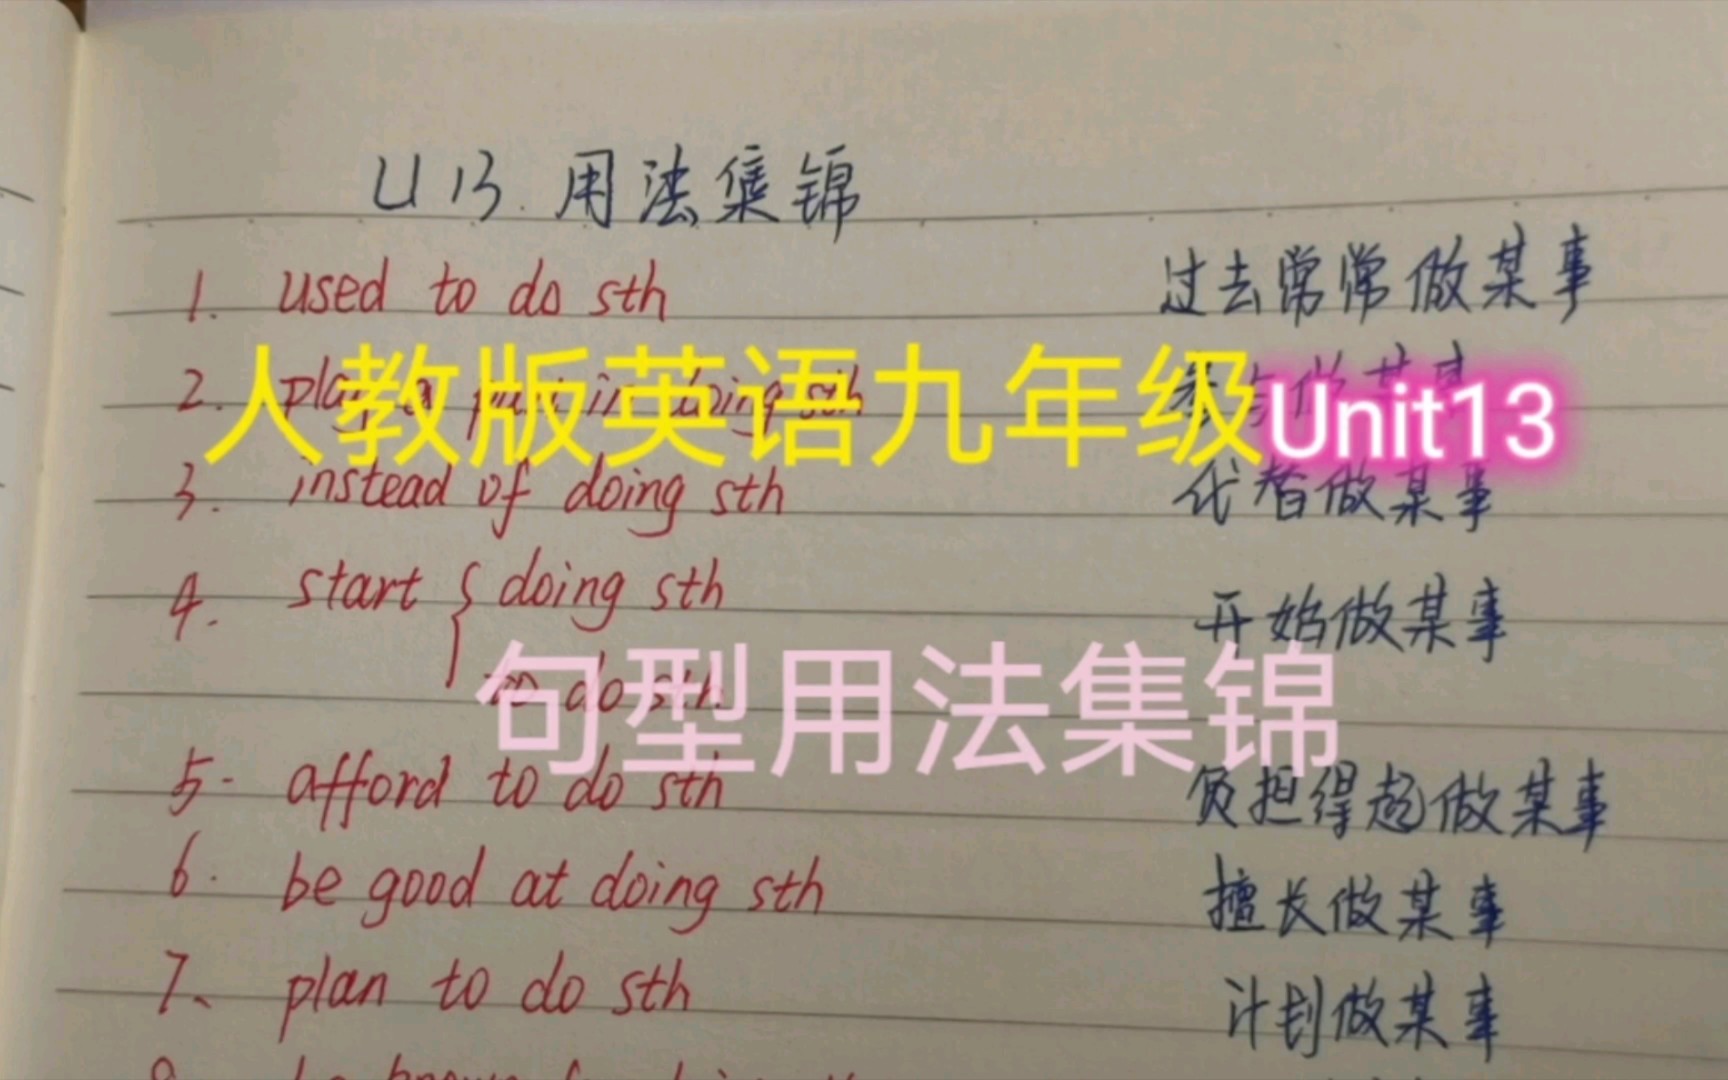 U13. 用法集锦
1. used to do sth 过去常常做某事
人教版英语九年级Unit13
2. play a part in doing sth 参与做某事
3. instead of doing sth 代替做某事
4. start { doing sth 开始做某事
to do sth
句型用法集锦
5. afford to do sth 负担得起做某事
6. be good at doing sth 擅长做某事
7、 plan to do sth 计划做某事